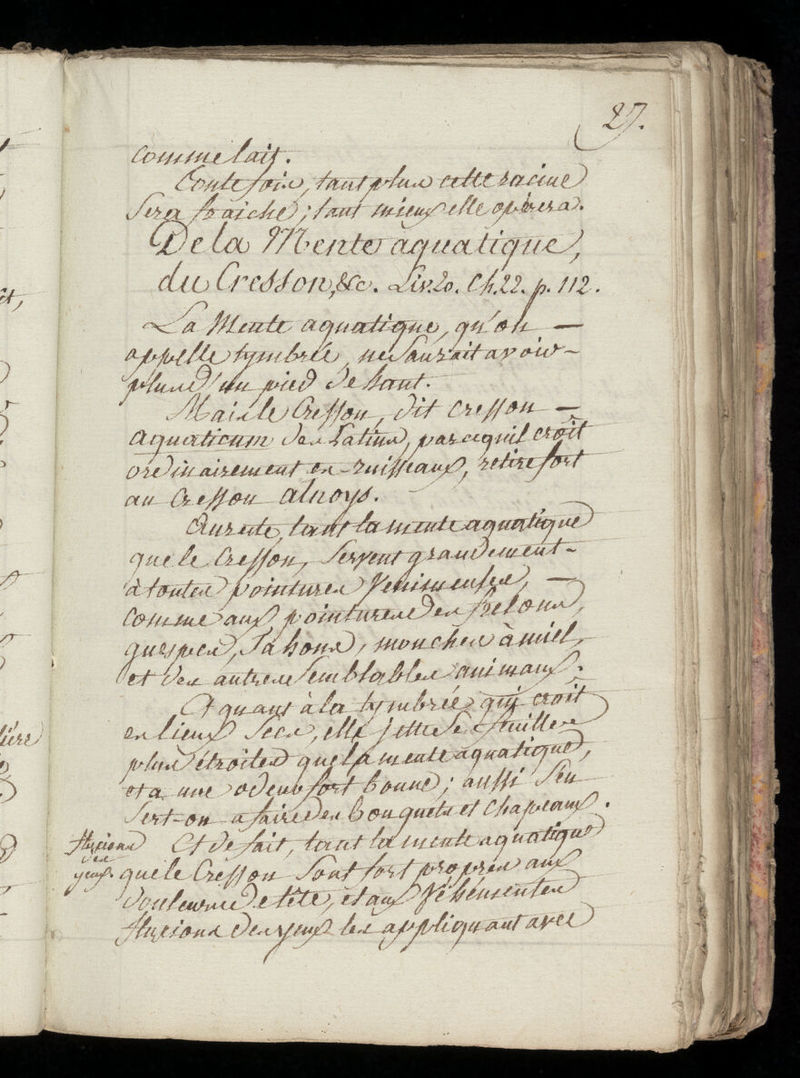 27.
comme lait.
Toute fois, tant plus cette racine
sera fraiche; tant mieux elle opérera.
De la Mente aquatique,
du Cresson, &c. Liv. 20. Ch. 22. p. 112.
La Mente aquatique, qu'on —
appelle tymbrée, ne sauroit avoir -
plus d'un pied de haut.
Mais le Cresson, dit cresson —
aquaticum des Latins, parcequ'il croît
ordinairement en ruisseaux, retire fort
au Cresson alnoys.
Au reste, tant la mente aquatique
que le Cresson, servent grandement -
à toutes pointures venimeuses, —
comme aux pointures des frelons,
guespes, Tahons, mouches à miel,
et des autres semblables animaux.
Et quant à la tymbrée qui croit
en lieux secs, elle jette ses feuilles
plus étroites que la mente aquatique,
et a une odeur fort bonne; aussi s'en
sert-on a faire des bouquets et chapeaux.
fluxions
des
yeux
Et de fait, tant la mente aquatique
que le Cresson sont fort propres aux
douleurs de tête, et aux véhémentes
fluxions des yeux les appliquant avec
ct,
lière